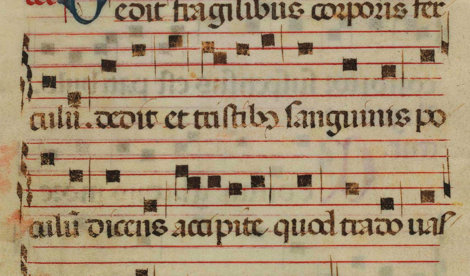 Dedit fragilibus corporis fer
culū. dedit et tristibꝫ sanguinis po
culū dicens accipite quod trado vas